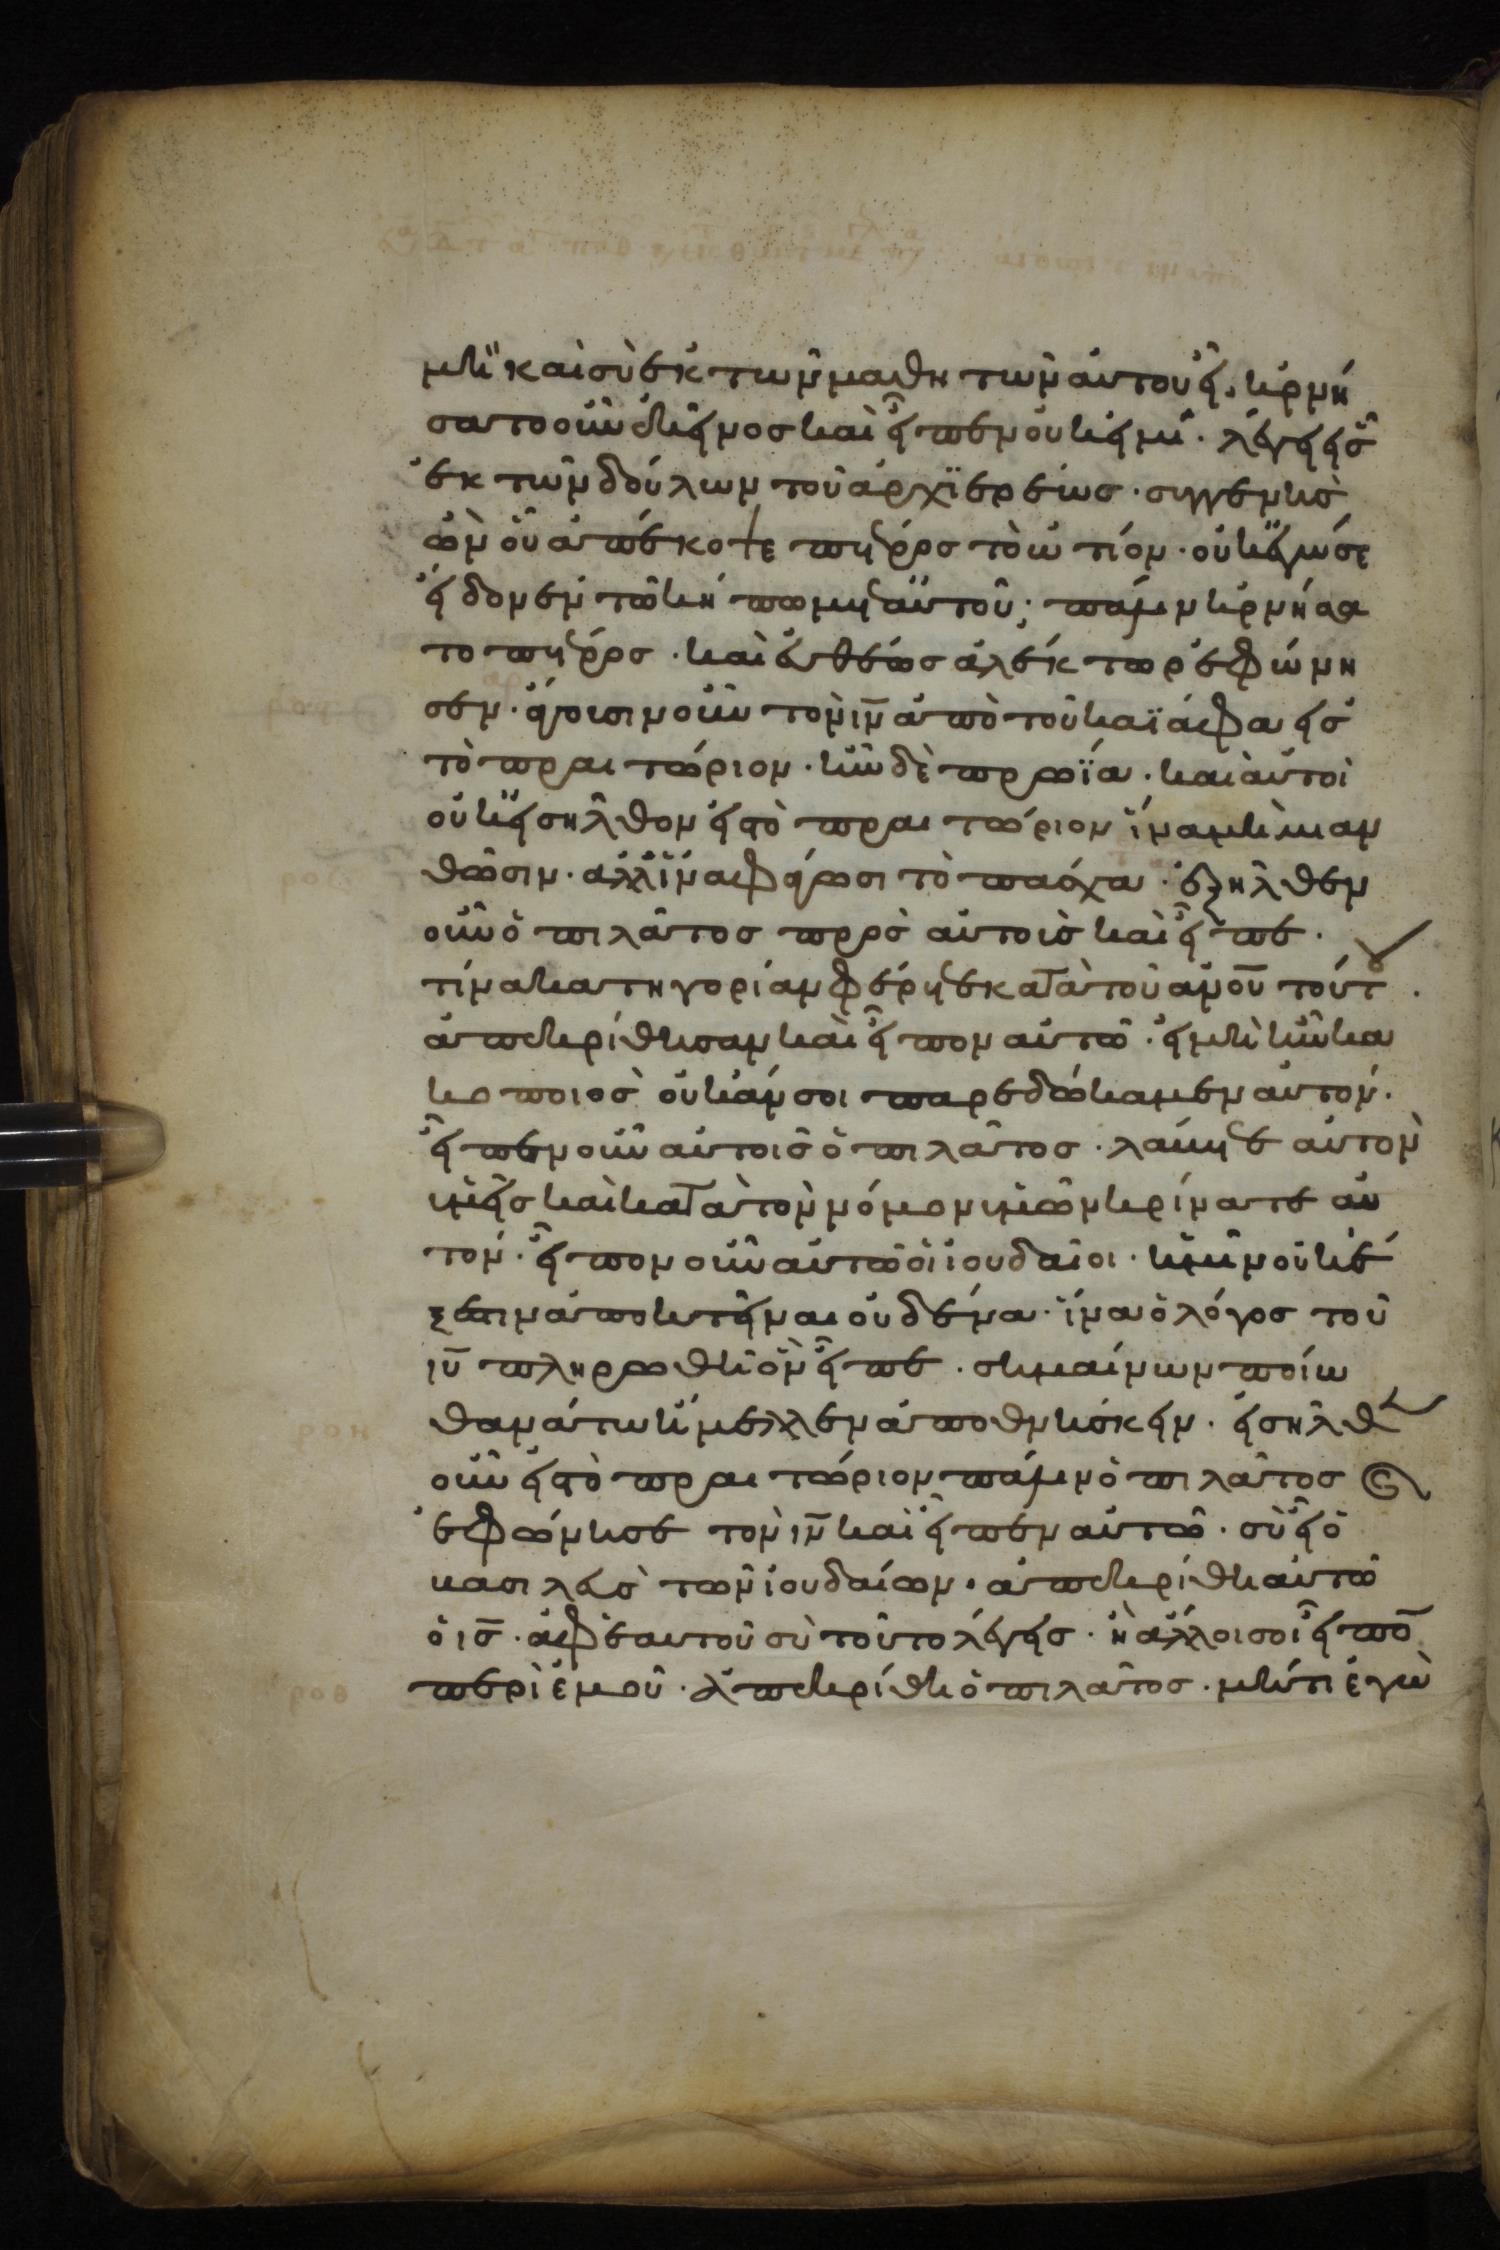 μὴ καὶ σὺ ἐκ τῶν μαθητῶν αὐτοῦ εἶ. ἠρνή
σατο οὖν ἐκεῖνος καὶ εἶπεν οὐκ εἰμί. λέγει εἷς
ἐκ τῶν δούλων τοῦ ἀρχϊερέως. συγγενὴς
ὢν οὗ ἀπέκοψε πέτρος τὸ ὠτίον. οὐκ ἐγώ σε
εἶδον ἐν τῶ κήπω μετ αὐτοῦ; πάλιν ἠρνήσα
το πέτρος. καὶ εὐθέως ἀλέκτωρ ἐφώνη
σεν. ἄγουσιν οὖν τὸν ιν ἀπὸ τοῦ καϊάφα εἰς
τὸ πραιτώριον. ἦν δὲ πρωΐα. καὶ αὐτοὶ
οὐκ εἰσῆλθον εἰς τὸ πραιτώριον ἵνα μὴ μιαν
θῶσιν. ἀλλ ἵνα φάγωσι τὸ πάσχα. ἐξῆλθεν
οὖν ὁ πιλᾶτος πρὸς αὐτοὺς καὶ εἶπε.
τίνα κατηγορίαν φέρετε κατὰ τοῦ ανου τούτ.
ἀπεκρίθησαν καὶ εἶπον αὐτῶ. εἰ μὴ ἦν κα
κοποιὸς οὐκ ἄν σοι παρεδώκαμεν αὐτόν.
εἶπεν οὖν αὐτοῖς ὁ πιλᾶτος. λάβετε αὐτὸν
ὑμεῖς καὶ κατὰ τὸν νόμον ὑμῶν κρίνατε αὐ
τόν. εἶπον οὖν αὐτῶ οἱ ἰουδαῖοι. ἡμῖν οὐκ ἔ
ξεστιν ἀποκτεῖναι οὐδένα. ἵνα ὁ λόγος τοῦ
ιυ πληρωθῆ ὃν εἶπε. σημαίνων ποίω
θανάτω ἤμελλεν ἀποθνήσκειν. εἰσῆλθ
οὖν εἰς τὸ πραιτώριον πάλιν ὁ πιλᾶτος
ἐφώνησε τὸν ιν καὶ εἶπεν αὐτῶ. σὺ εἶ ὁ
βασιλεὺς τῶν ἰουδαίων. ἀπεκρίθη αὐτῶ
ὁ ις. ἀφ ἑαυτοῦ σὺ τοῦτο λέγεις. ἢ ἄλλοι σοι εἶπο
περὶ ἐμοῦ. ἀπεκρίθη ὁ πιλᾶτος. μήτι ἐγὼ
ροη
ροθ